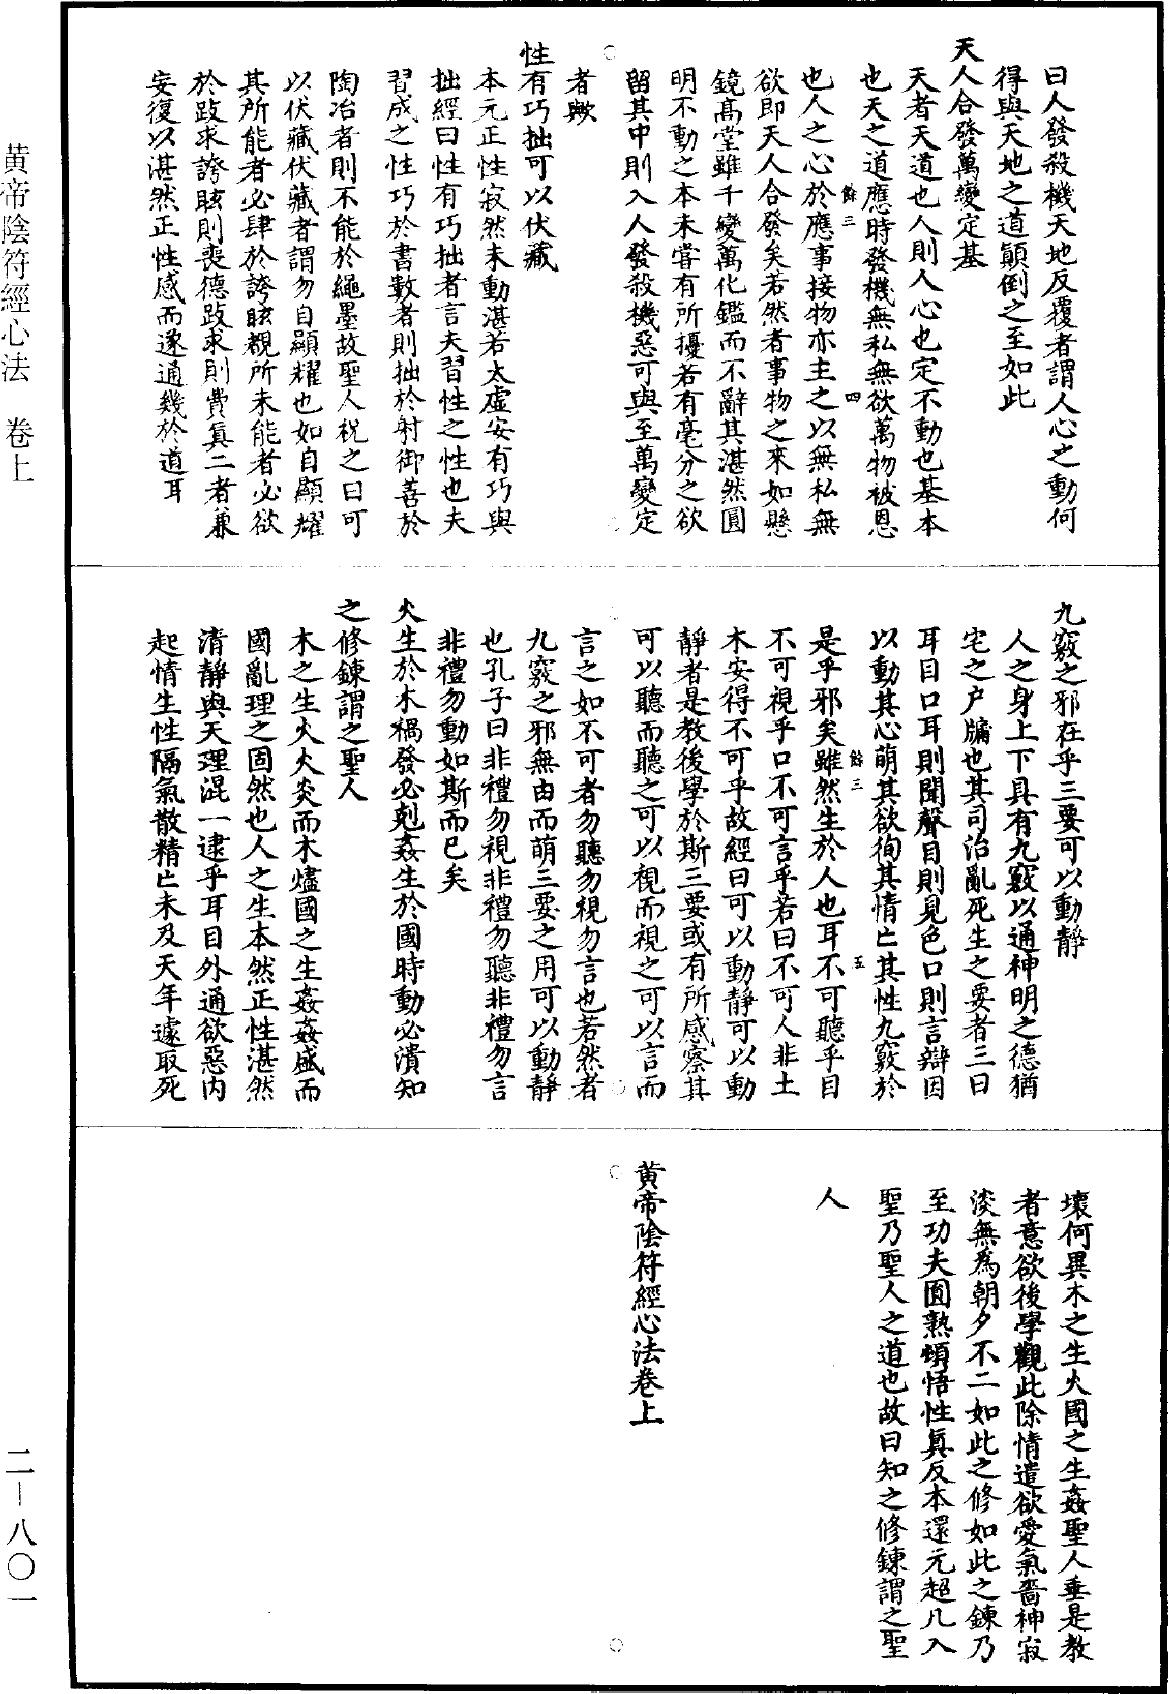 曰人發殺機天地反覆者謂人心之動何
得與天地之道顛倒之至如此
天人合發萬變定基
天者天道也人則人心也定不動也基本
也天之道應時發機無私無欲萬物被恩
餘三
四
也人之心於應事接物亦主之以無私無
欲即天人合發矣若然者事物之來如懸
鏡高堂雖千變萬化鑑而不辭其湛然圓
明不動之本未嘗有所擾若有毫分之欲
留其中則入人發殺機惡可與至萬變定
者歟
性有巧拙可以伏藏
本元正性寂然未動湛若太虛安有巧與
拙經曰性有巧拙者言夫習性之性也夫
習成之性巧於書數者則拙於射御善於
陶冶者則不能於繩墨故聖人祝之曰可
以伏藏伏藏者謂勿自顯耀也如自顯耀
其所能者必肆於誇眩覩所未能者必欲
於跂求誇眩則喪德跂求則費真二者兼
安復以湛然正性感而遂通幾於道耳
九竅之邪在乎三要可以動靜
人之身上下具有九竅以通神明之德猶
宅之户牖也其司治亂死生之要者三曰
耳目口耳則聞聲目則見色口則言辯因
以動其心萌其欲徇其情亡其性九竅於
餘三
五
是乎邪矣雖然生於人也耳不可聽乎目
不可視乎口不可言乎若曰不可人非土
木安得不可乎故經曰可以動靜可以動
靜者是教後學於斯三要或有所感察其
可以聽而聽之可以視而視之可以言而
言之如不可者勿聽勿視勿言也若然者
九竅之邪無由而萌三要之用可以動靜
也孔子曰非禮勿視非禮勿聽非禮勿言
非禮勿動如斯而已矣
火生於木禍發必剋姦生於國時動必潰知
之修鍊謂之聖人
木之生火火炎而木燼國之生姦姦盛而
國亂理之固然也人之生本然正性湛然
清靜與天理混一逮乎耳目外通欲惡内
起情生性隔氣散精亡未及天年遽取死
壞何異木之生火國之生姦聖人垂是教
者意欲後學觀此除情遣欲愛氣嗇神寂
淡無為朝夕不二如此之修如此之鍊乃
至功夫圓熟頓悟性真反本還元超凡入
聖乃聖人之道也故曰知之修鍊謂之聖
人
黄帝陰符經心法卷上
黄帝陰符經心法　卷上
二—八〇一